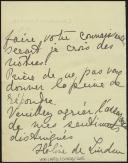 faire, votre connaissance
serait je crois des
nôtres!
Prière de ne pas vous
donner la peine de
répondre.
Veuillez agréer l'assurance
de mes sentiments
distingués